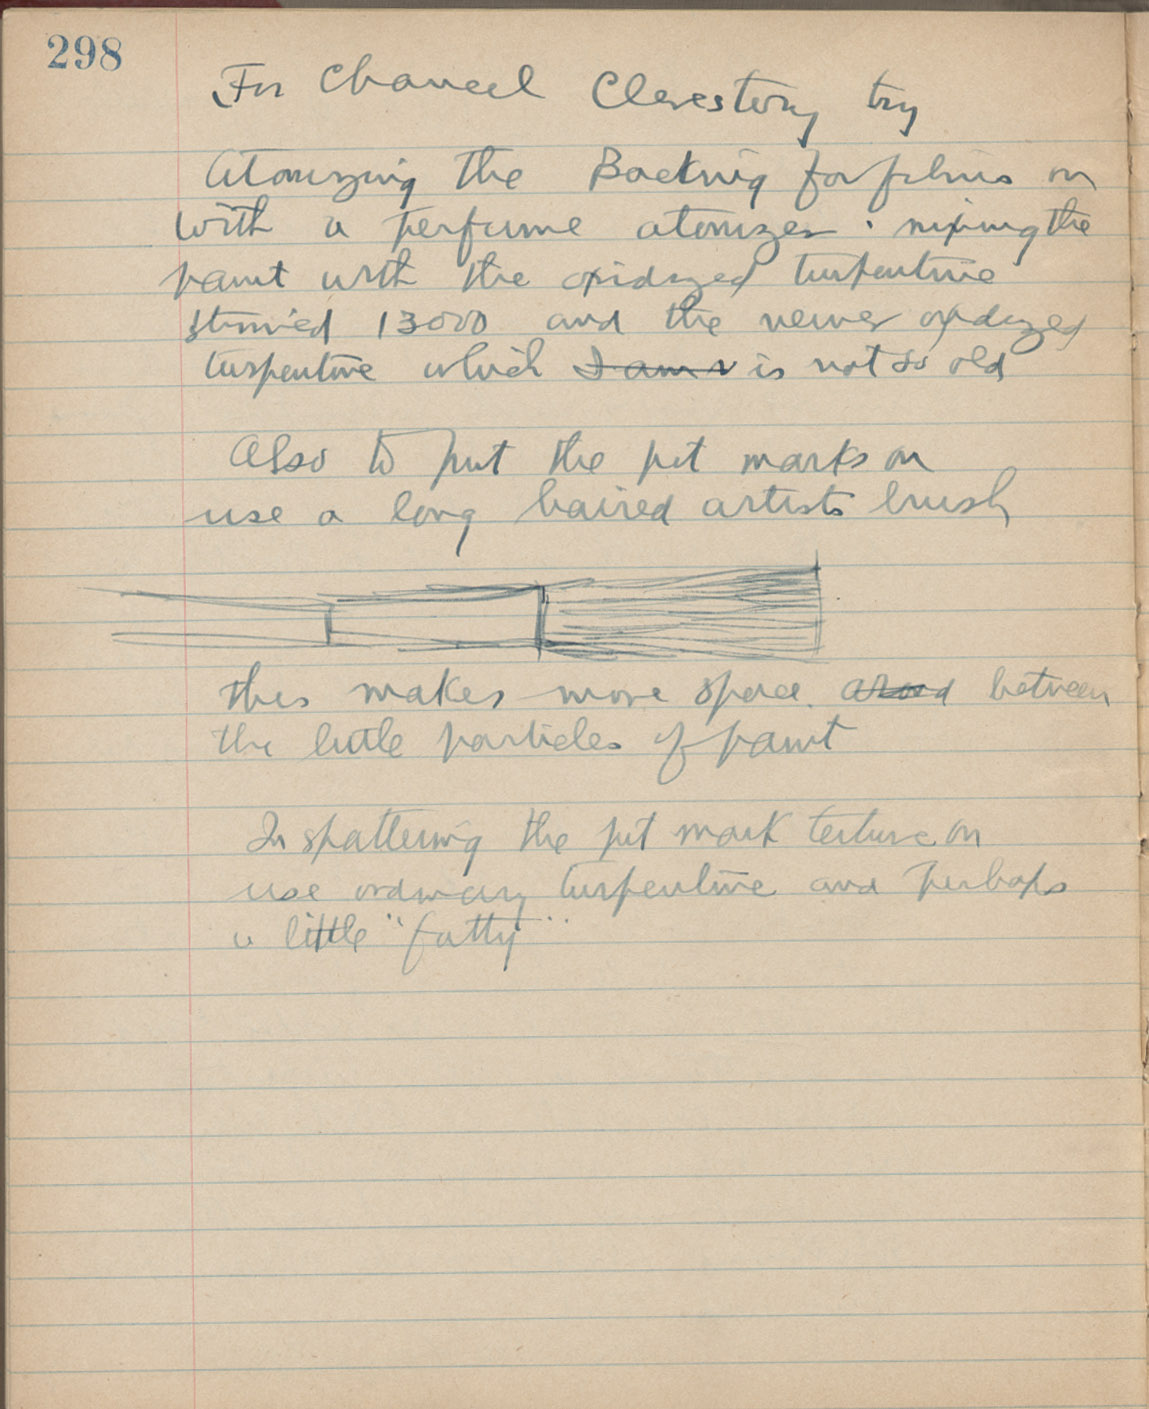 298
For Chancel Clerestory try
Atomizing the Backing for films on
with a perfume atomizer. mixing the
paint with the oxidized turpentine
13000 and the newer oxidized
turpentine which I am is not so old
Also to put the pit marks on
use a long haired artists brush
this makes more space between
the little particles of paint
In spattering the pit mark texture on
use ordinary turpentine and perhaps
a little "fatty"